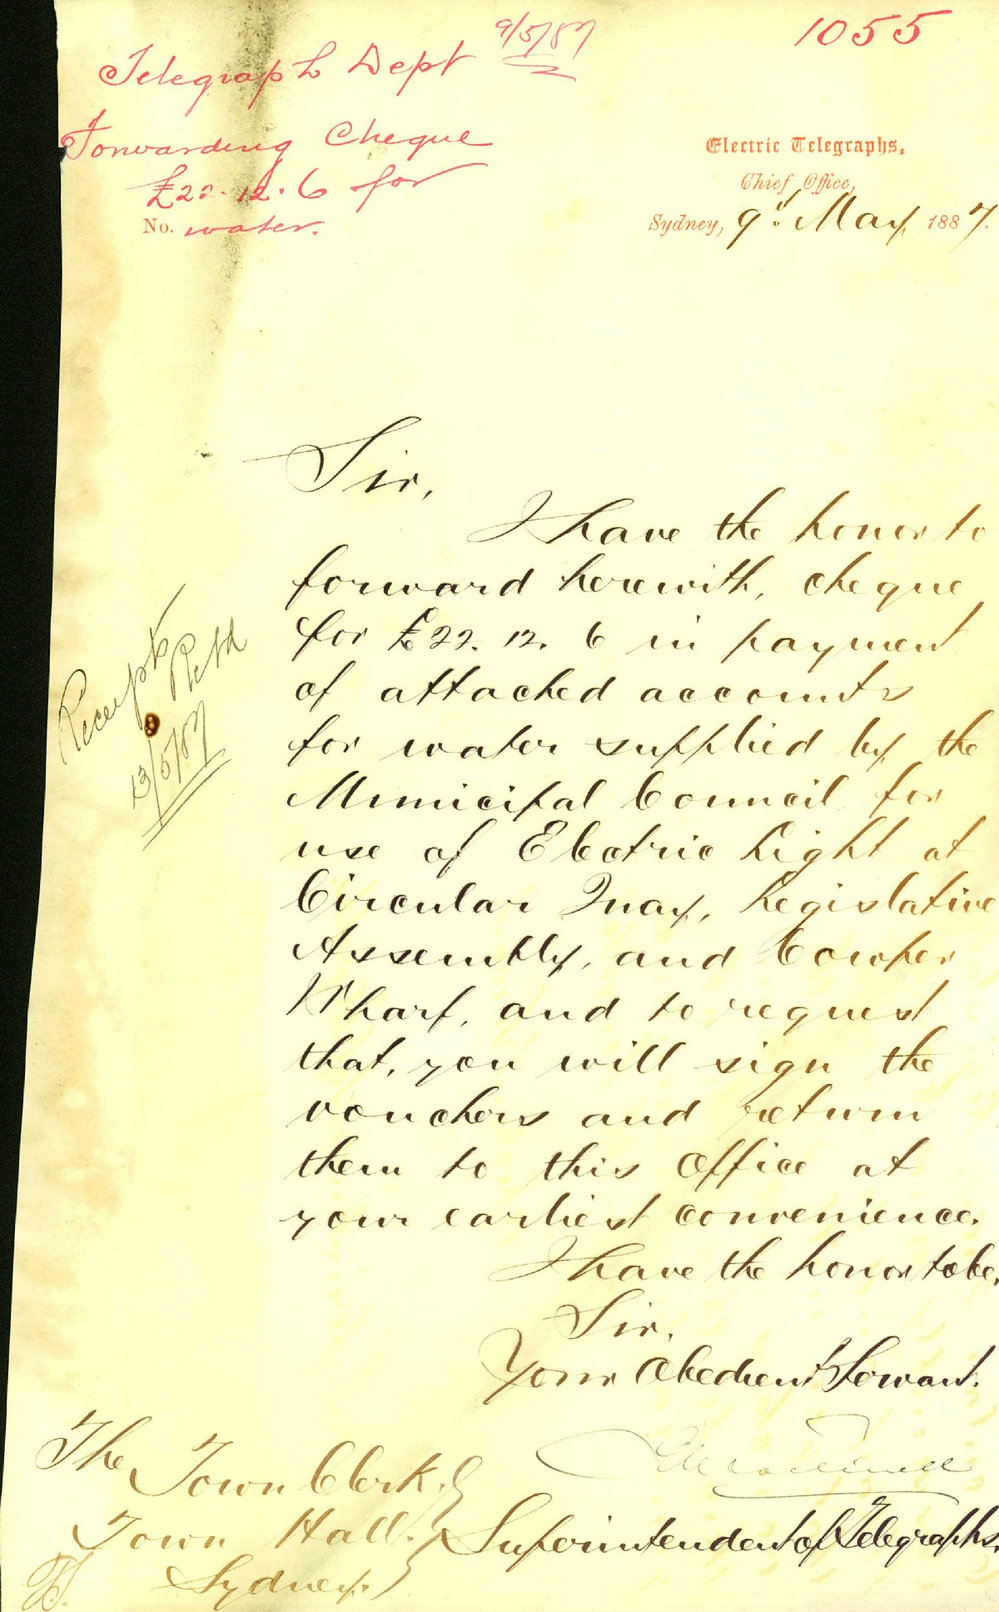 9/5/87
1055
Telegraph Dept
Forwarding Cheque
£22.12.6 for
No. water.
Electric Telegraphs,
Chief Office,
Sydney, 9th May 1887.
Sir,
I have the honor to
forward herewith, cheque
for £22. 12. 6 in payment
of attached accounts
for water supplied by the
Municipal Council for
use of Electric Light at
Circular Quay, Legislative
Assembly, and Cowper
Wharf, and to request
that, you will sign the
vouchers and return
them to this Office at
your earliest convenience.
I have the honor to be,
Sir,
Your Obedient Servant.
Superintendent of Telegraphs.
The Town Clerk,
Town Hall.
Sydney.
Receipts
13/5/87